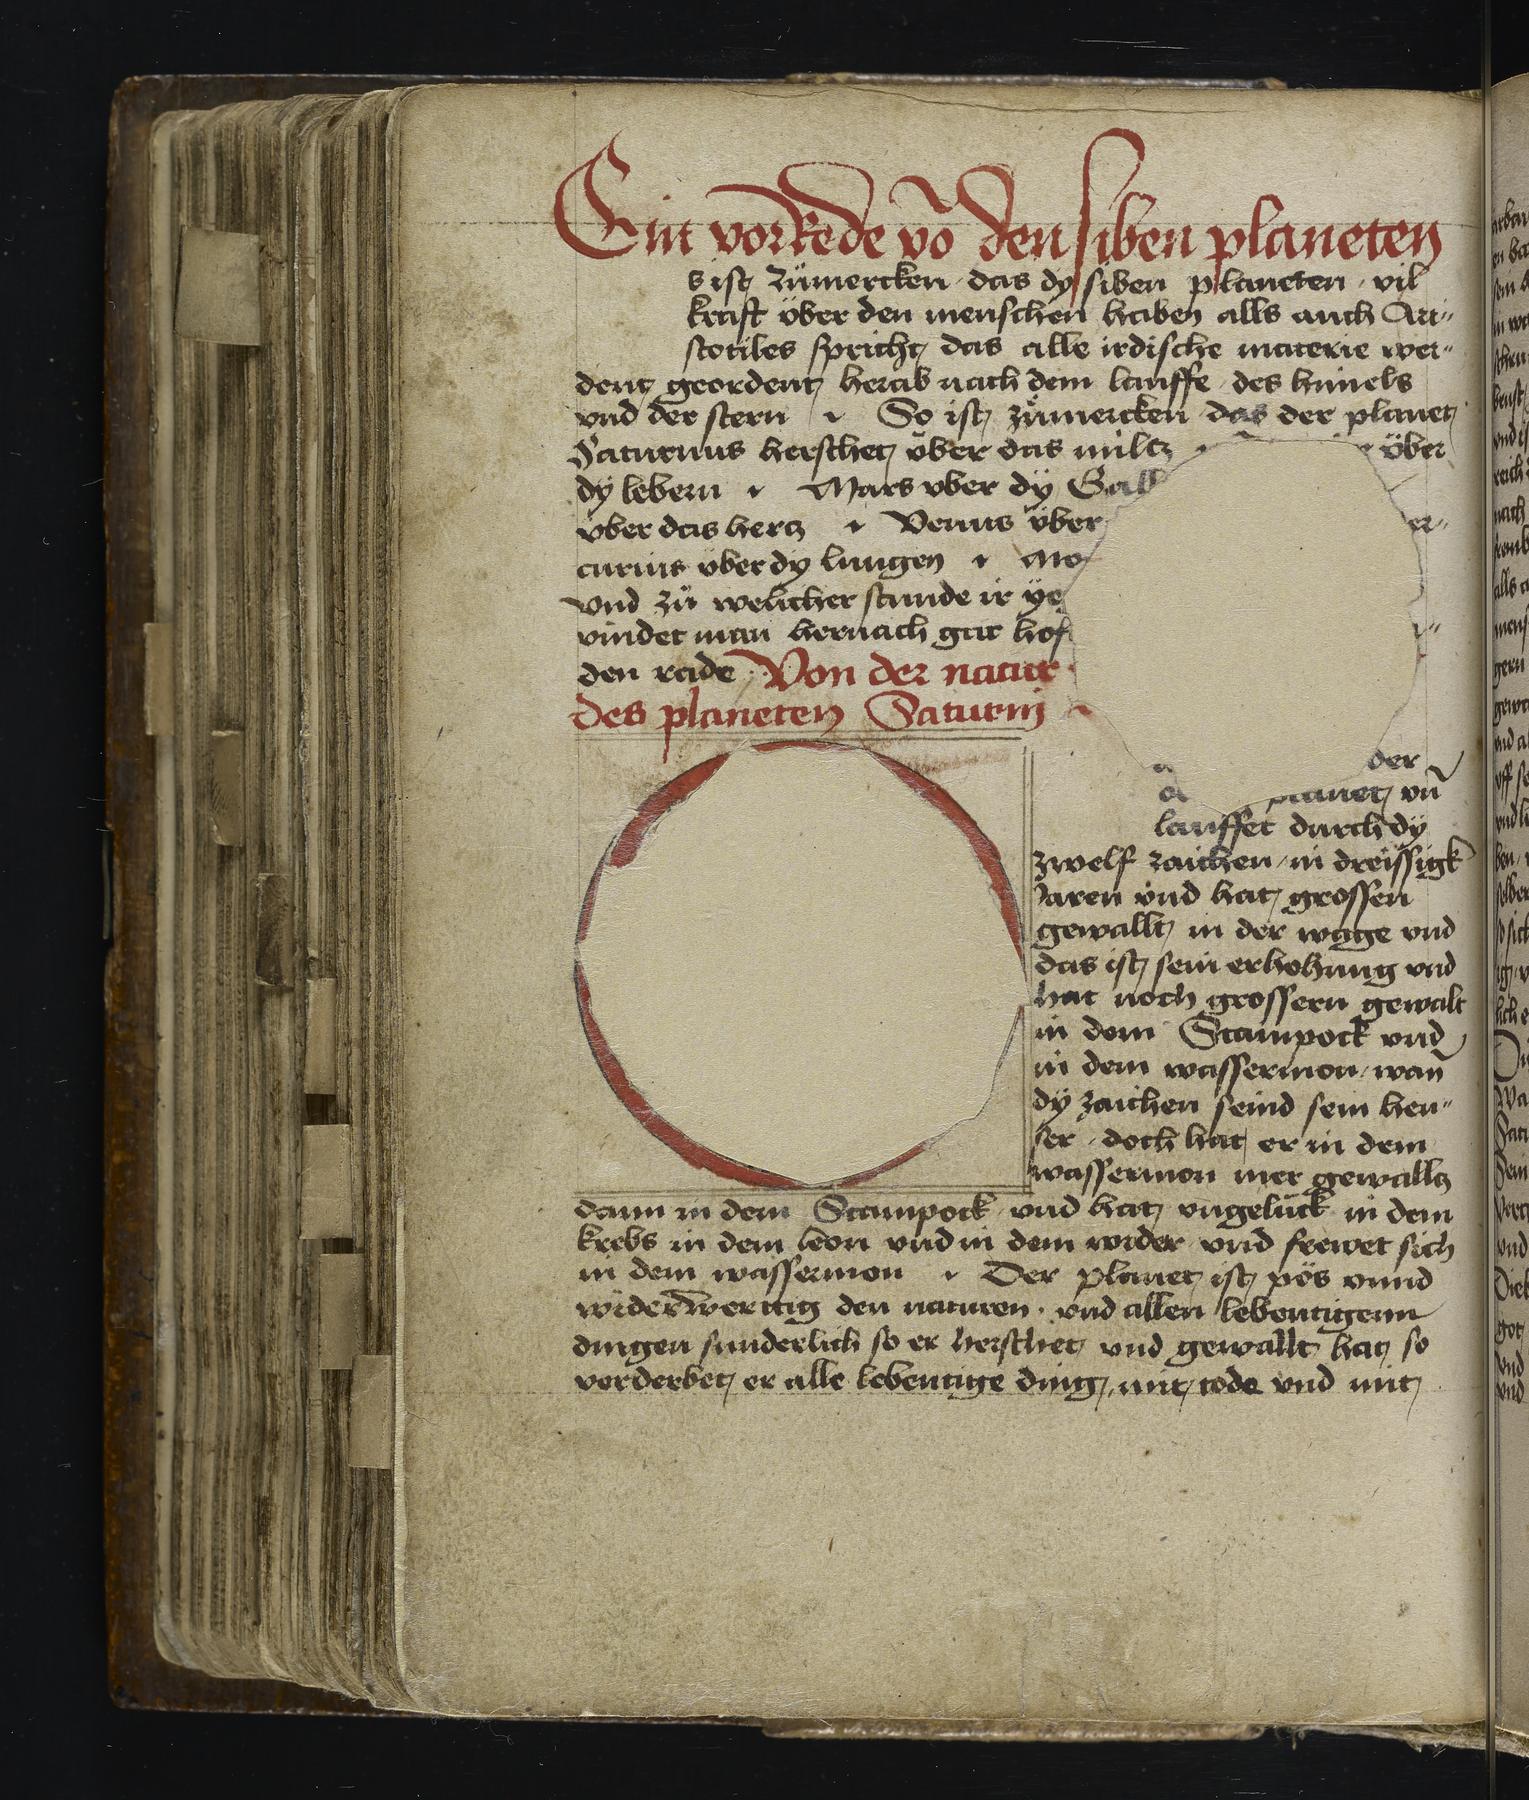 Ein vorrede vō den siben planeten
s ist zůmercken das dy siben planeten vil
kraft über den menschen haben alls auch Ari-
stotiles spricht das alle irdische materie wer-
dent geordent herab nach dem lauffe des himels
vnd der stern So ist zůmercken das der planet
Saturnus herschet über das miltz über
dy lebern Mars vber dy Gall
über das hertz Venus über er-
curius über dy lungen Mo
vnd zů welicher stunde ir ye
vindet man hernach gar hof
den rade Von der natur
des planeten Saturnj
der
planet vn̄
lauffet durch dy
zwelf zaichen in dreissigk
Jaren vnd hat grossen
gewallt in der wage vnd
das ist sein erhohung vnd
hat noch grossern gewalt
in dem Stainpock vnd
in dem wasserman wan̄
dy zaichen seind sein heu-
ser doch hat er in dem
wasserman mer gewallt
dann in dem Stainpock vnd hat vngelück in dem
krebs in dem leon vnd in dem wider vnd frewet sich
in dem wasserman Der planet ist pös vnnd
widerwerttig den naturen vnd allen lebentigenn
dingen sunderlich so er herschet vnd gewallt hat so
verderbet er alle lebentige ding mit tode vnd mit